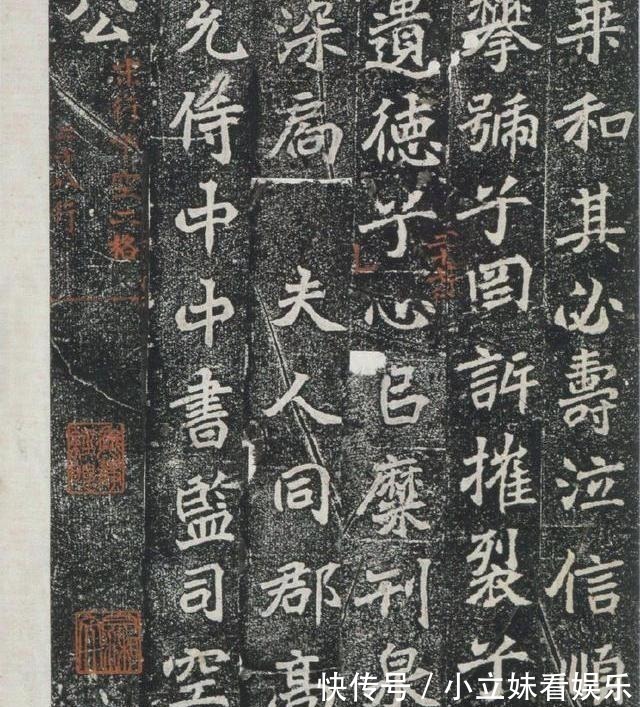 秉和其必壽泣信順
攀號乎罔訴摧裂乎
遺德乎心已糜刊泉
深扃 夫人同郡高
允侍中中書監司空
公
快传号 / 小立妹看娱乐